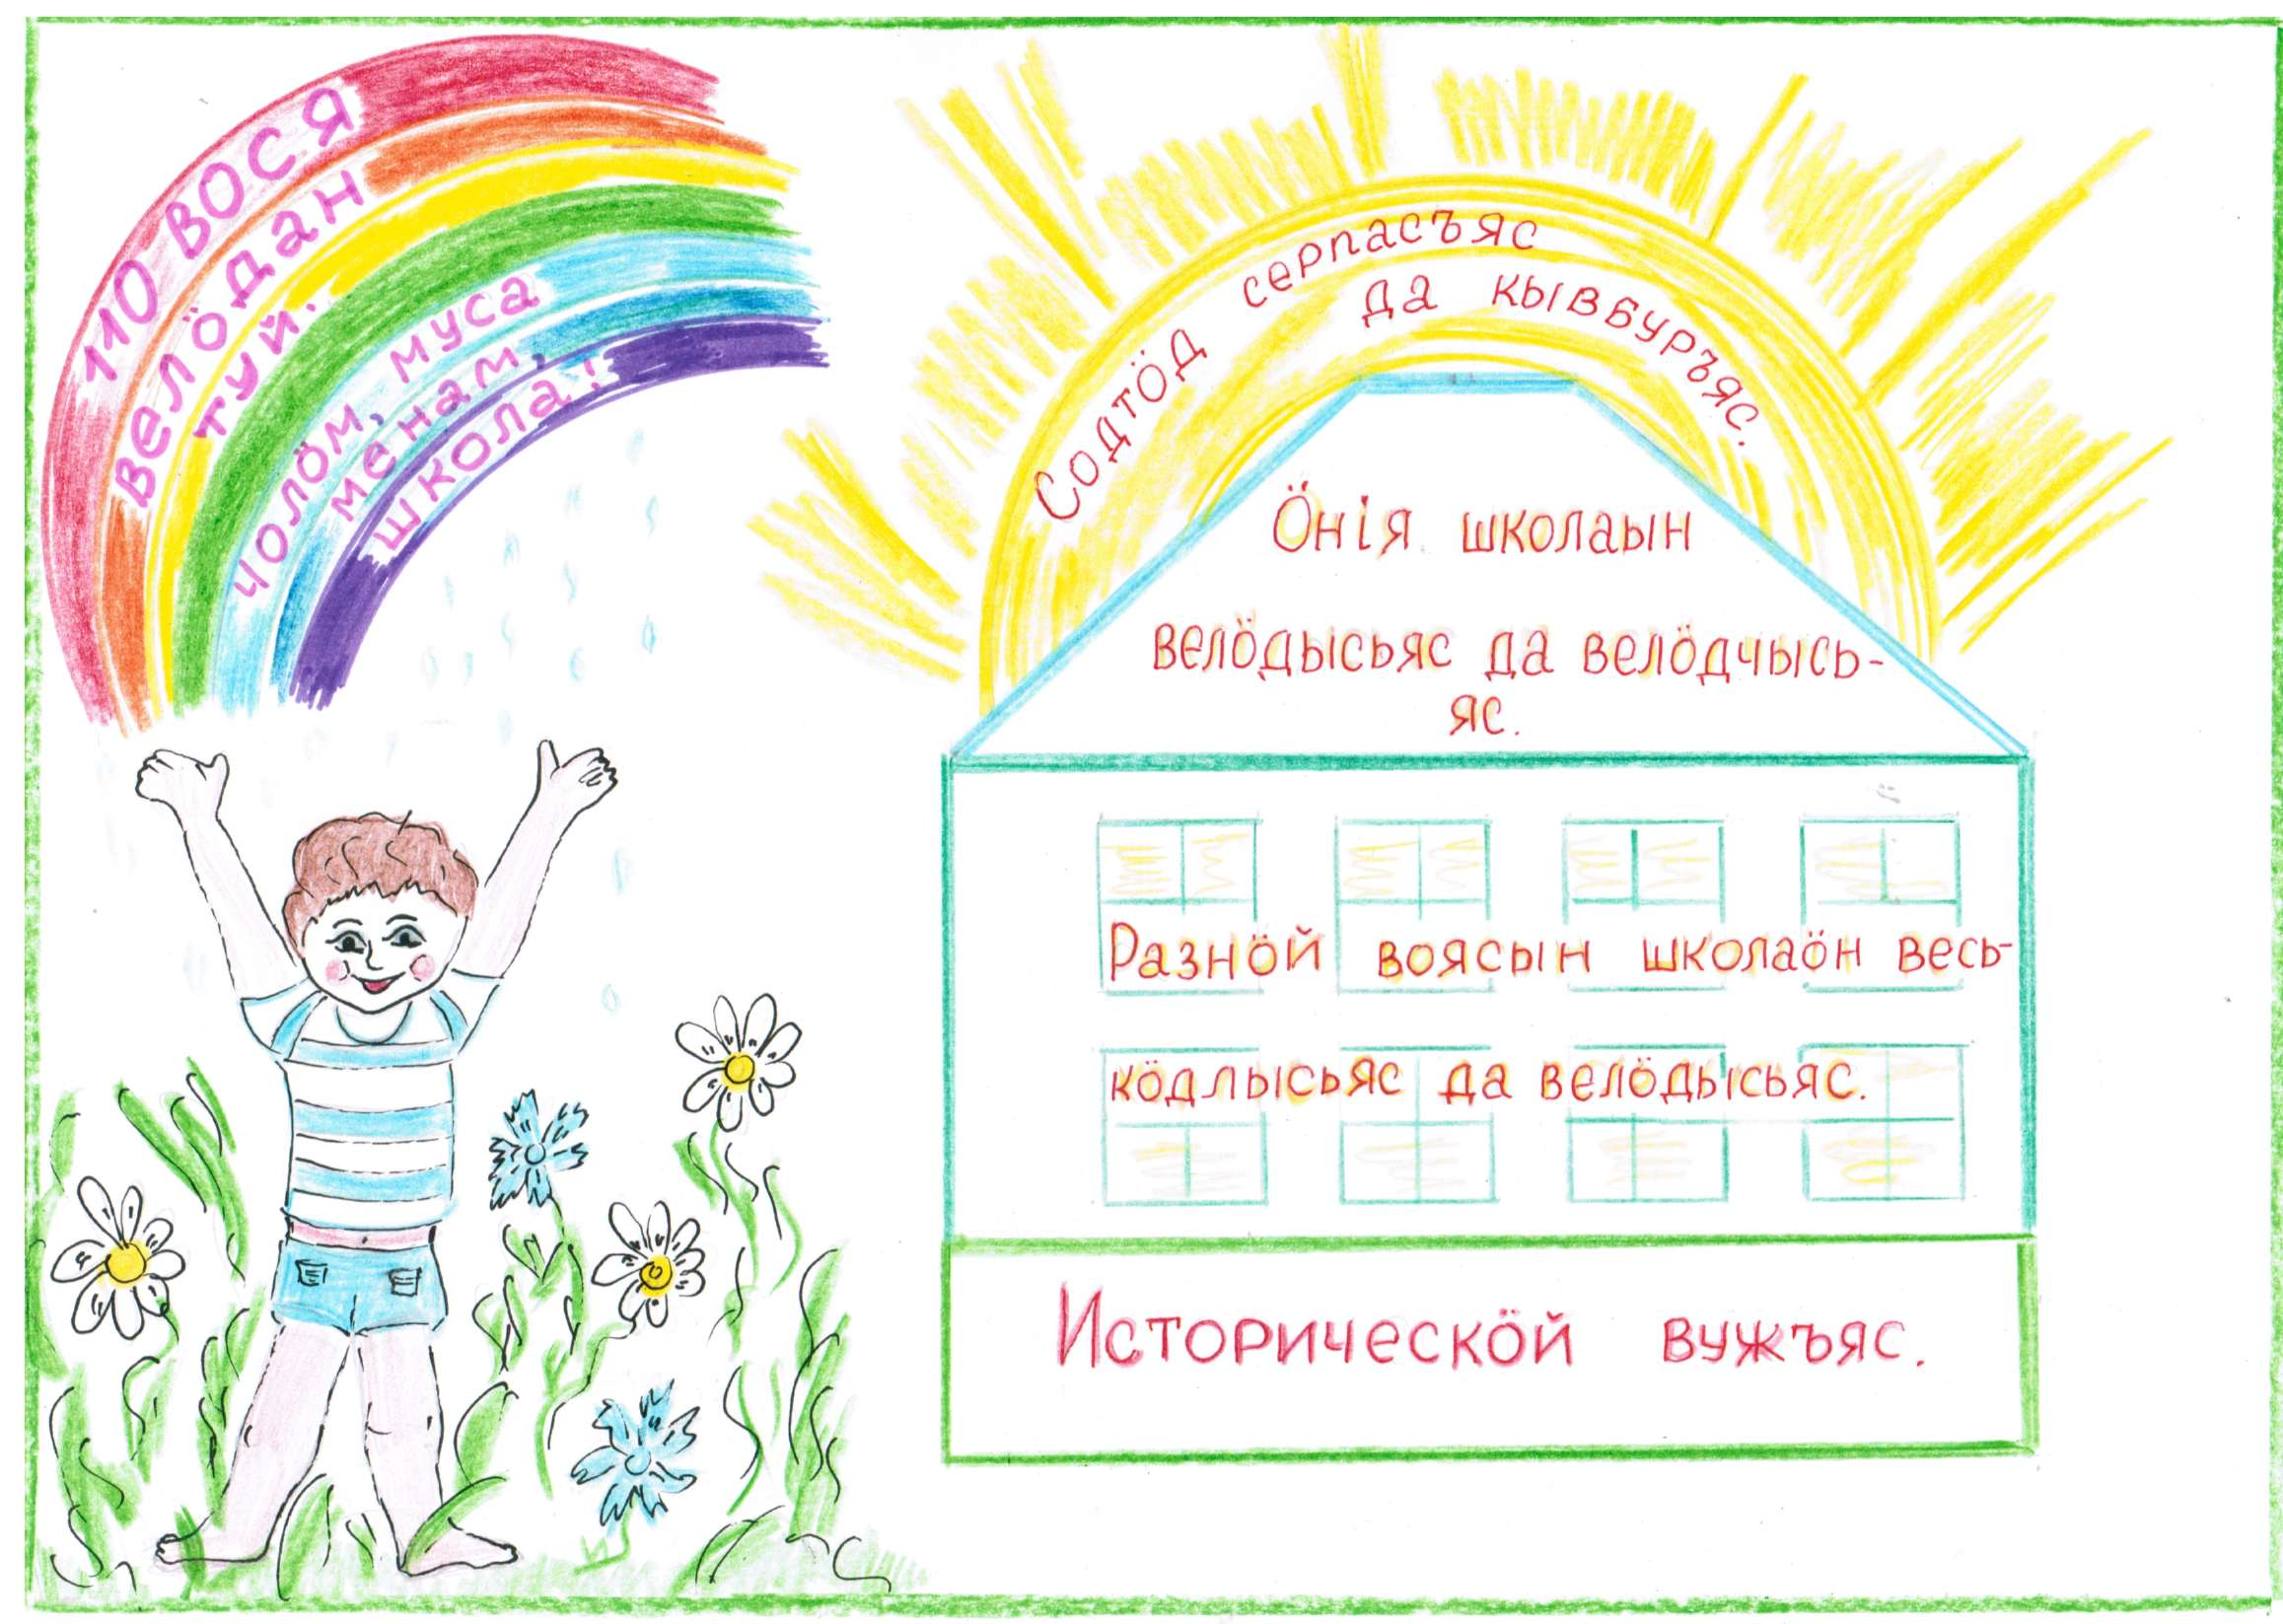 110 вося
велöдан
туй.
чолöм, муса
менам,
школа!
Содтöд серпасъяс
да кывбуръяс.
Öнiя школаын
велöдысьяс да велöдчысь-
яс.
Разнöй воясын школаöн весь-
кöдлысьяс да велöдысьяс.
Историческöй вужъяс.